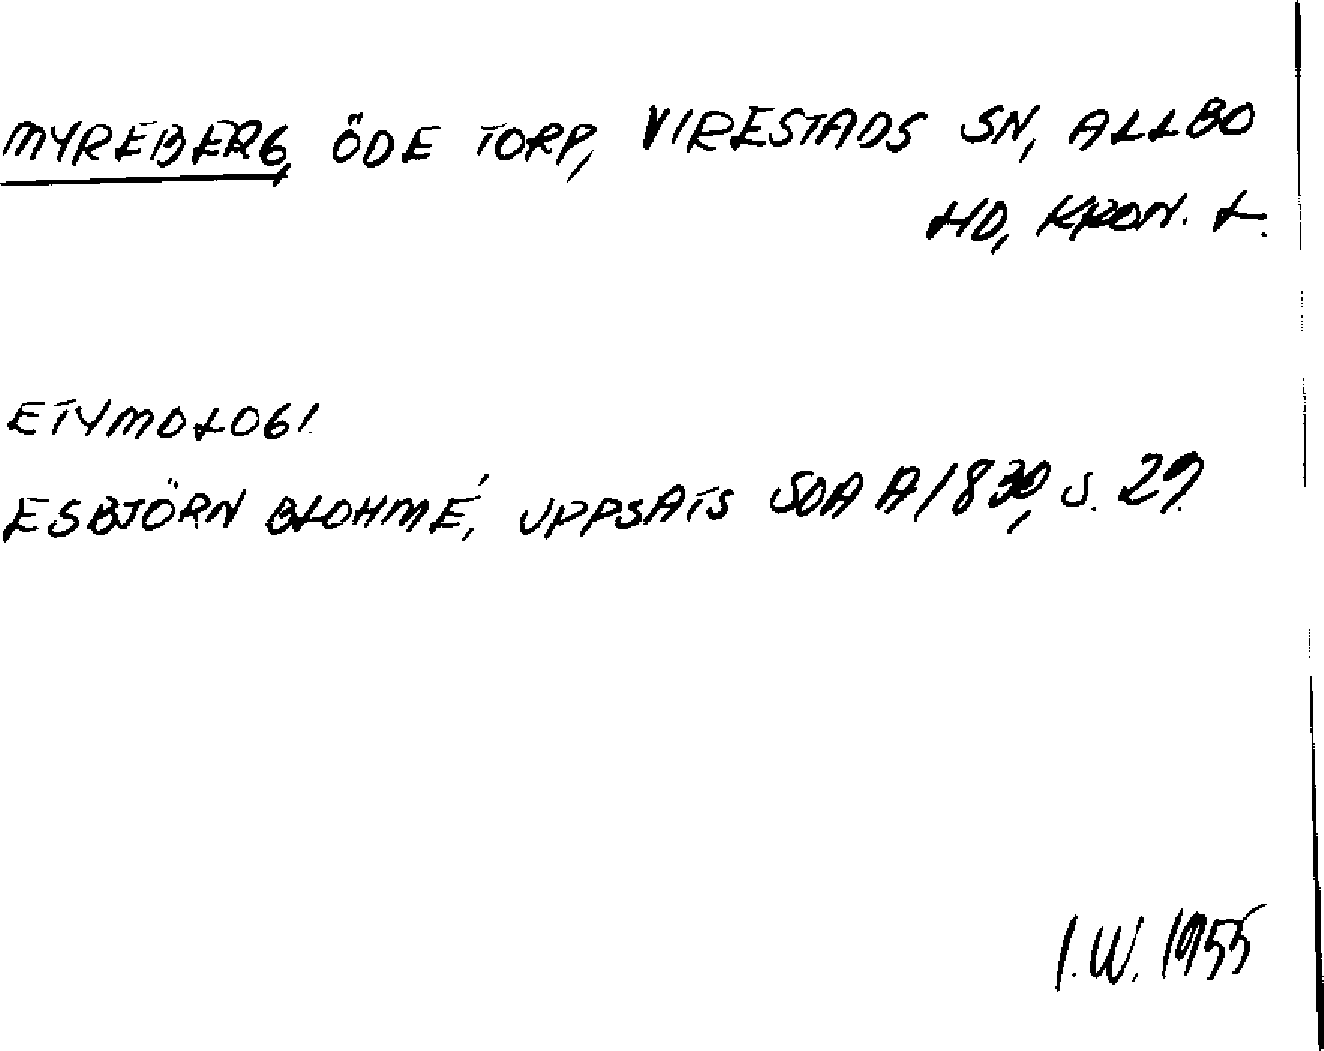 MYREBERG, ÖDE TORP, VIRESTADS SN, ALLBO
HD, KRON. L.
ETYMOLOGI.
ESBJÖRN BLOHMÉ, UPPSATS SOA A/830, S. 29.
I.W. 1955